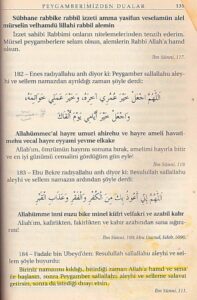 PEYGAMBERİMİZDEN DUALAR 135
Sübhane rabbike rabbil izzeti amma yasifun veselamün alel
mürselin velhamdü lillahi rabbil alemin
İzzet sahibi Rabbimi onların nitelemelerinden tenzih ederim.
Mürsel peygamberlere selam olsun, alemlerin Rabbi Allah'a hamd
olsun.
İbn Sünni, 117.
182 – Enes radıyallahu anh diyor ki: Peygamber sallallahu aleyhi
ve sellem namazdan ayrıldığı zaman şöyle derdi:
اَللّٰهُمَّ اجْعَلْ خَيْرَ عُمْرِي اٰخِرَهُ، وَخَيْرَ عَمَلِي خَوَاتِمَهُ،
وَاجْعَلْ خَيْرَ اَيَّامِي يَوْمَ اَلْقَاكَ
Allahümmec'al hayre umuri ahirehu ve hayre ameli havati-
mehu vecal hayre eyyami yevme elkake
Allah'ım, ömrümün hayrını sonuna bırak, amelimi hayırla bitir
ve en iyi günümü cemalini gördüğüm gün eyle!
İbn Sünni, 119.
183 – Ebu Bekre radıyallahu anh diyor ki: Resulullah sallallahu
aleyhi ve sellem namazların arkasında şöyle derdi:
اَللّٰهُمَّ اِنِّي اَعُوذُ بِكَ مِنَ الْكُفْرِ وَالْفَقْرِ وَعَذَابِ الْقَبْرِ
Allahümme inni euzu bike minel küfri velfakri ve azabil kabr
Allah'ım, küfürden, fakirlikten ve kabir azabından sana sığını-
rım!
İbn Sünni, 109; Ebu Davud, Edeb, 5090.
184 – Fadale bin Ubeyd'den: Resulullah sallallahu aleyhi ve sel-
lem dedi ki:
Biriniz namazını kıldığı, bitirdiği zaman Allah'a hamd ve sena
ile başlasın, sonra Peygamber sallallahu aleyhi ve selleme salavat
getirsin, sonra da istediği duayı etsin.
İbn Sünni, 111.